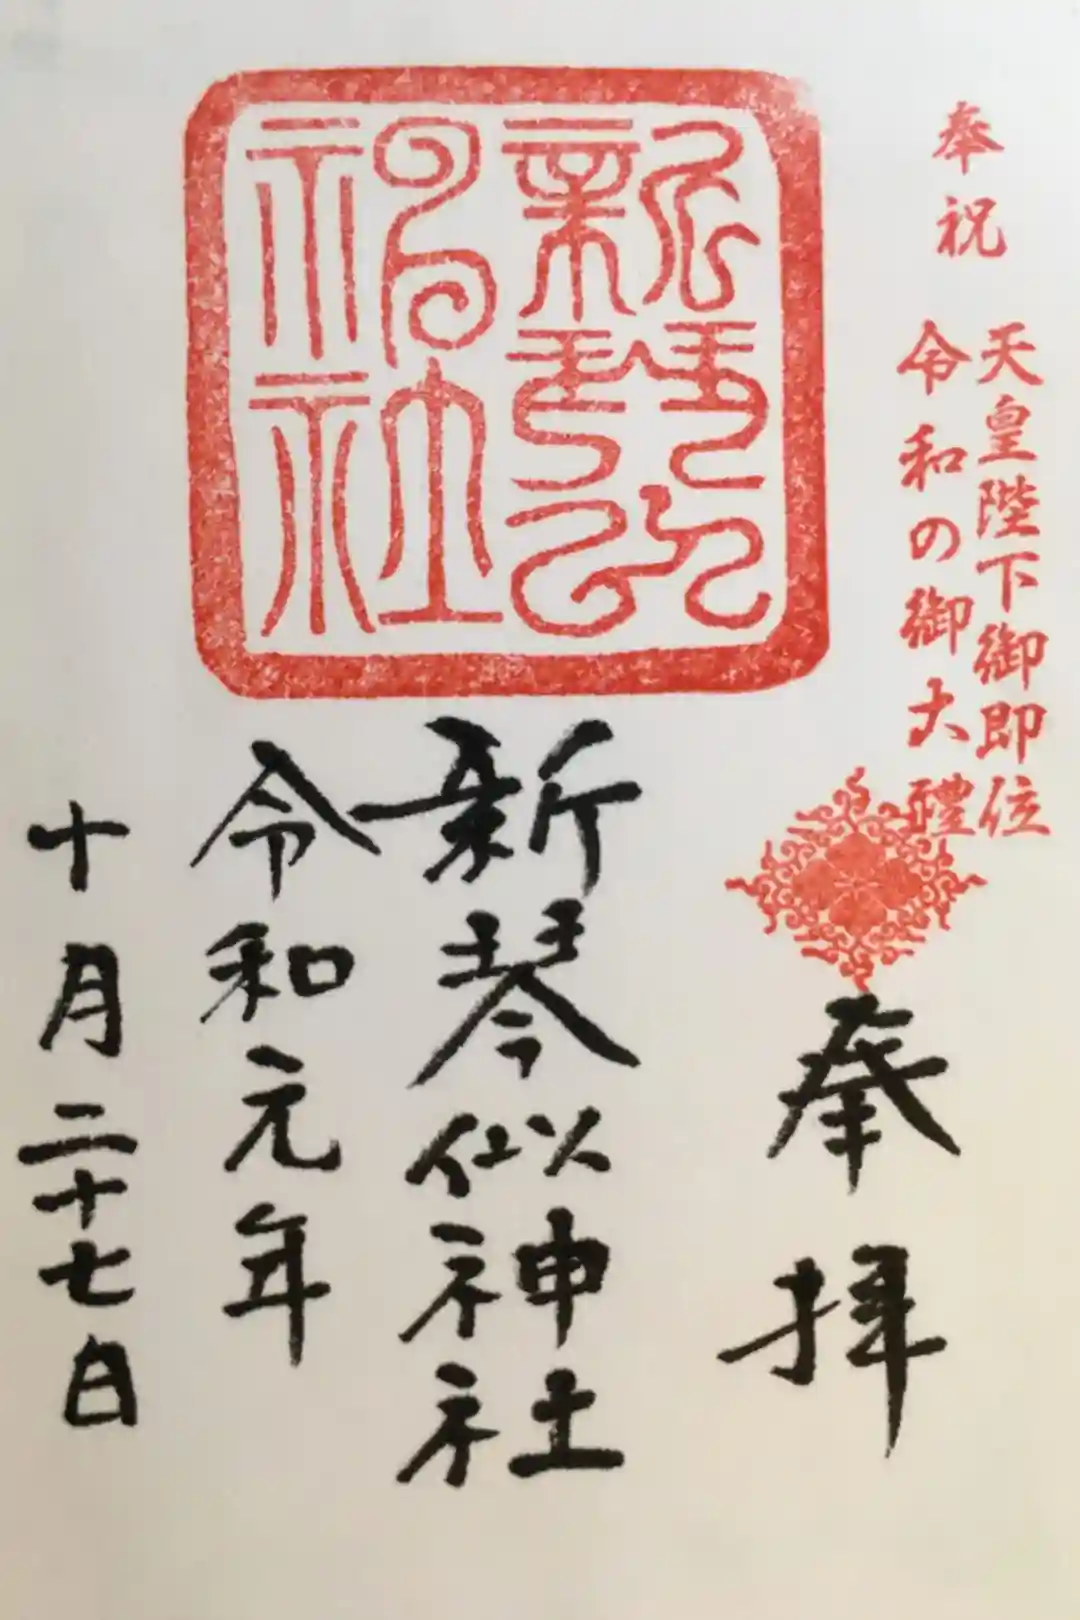 奉祝
天皇陛下御即位
令和の御大禮
奉拝
新琴似
神社
新琴似神社
令和元年
十月二十七日